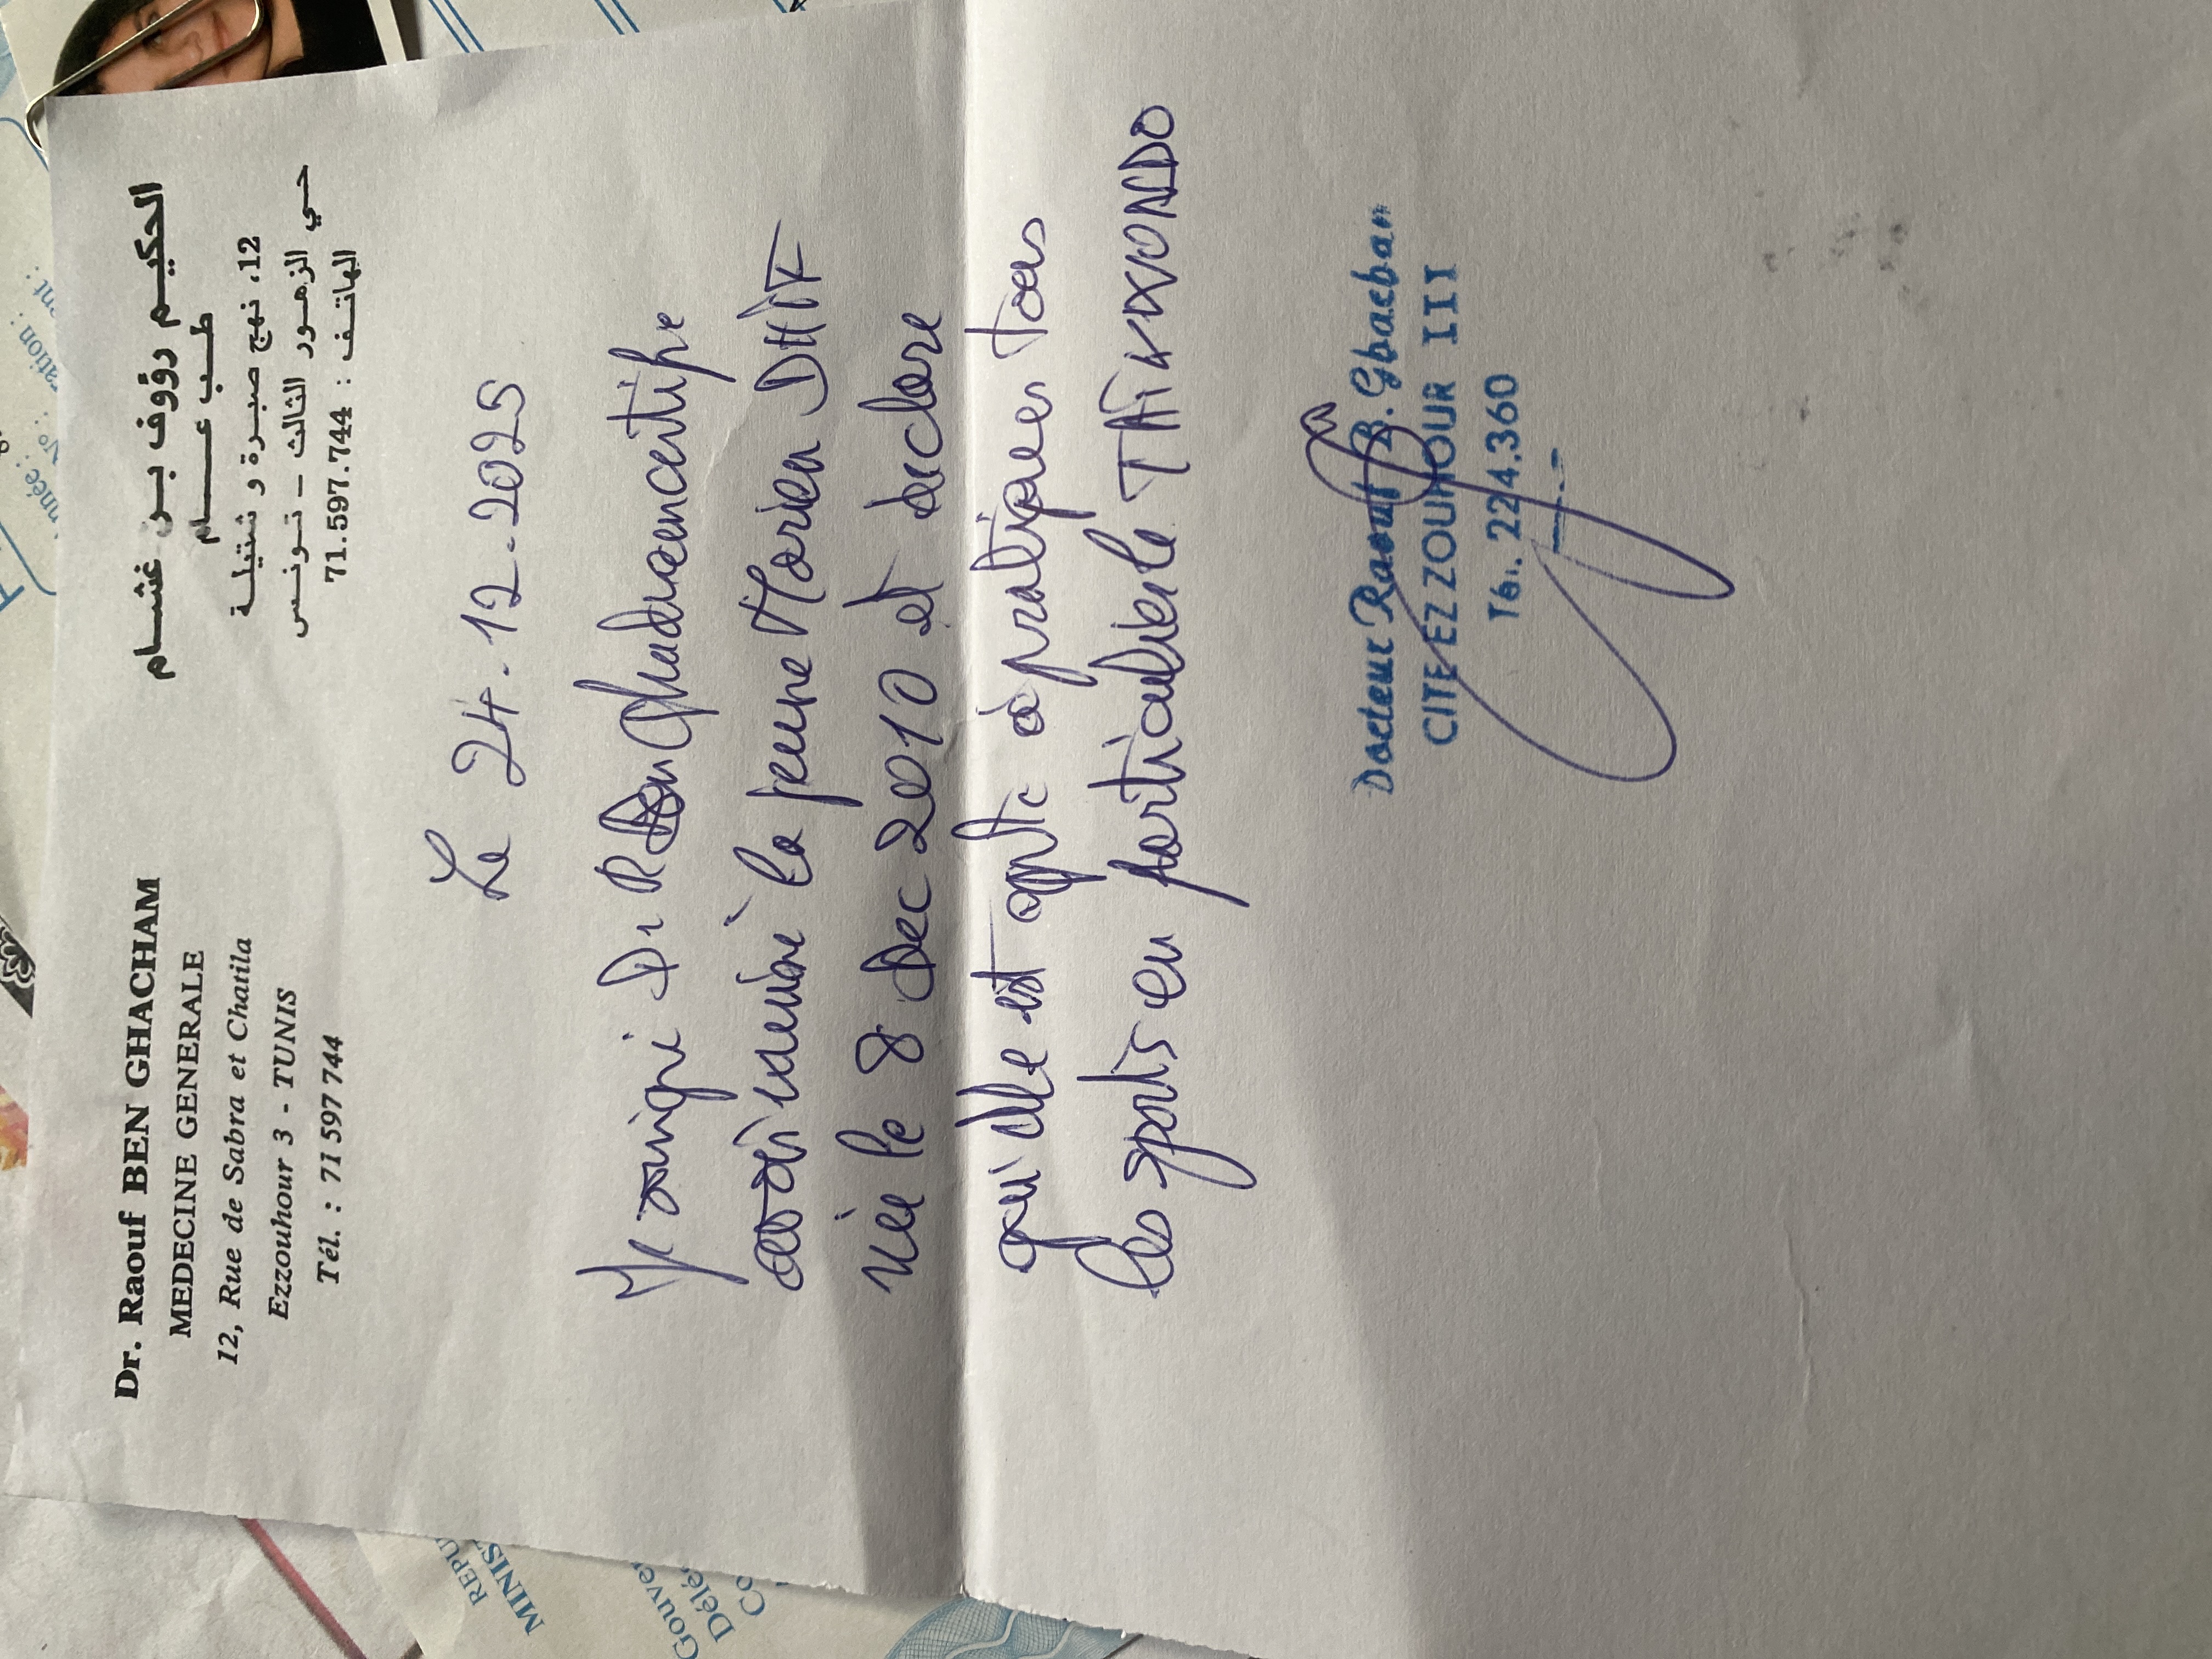 Dr. Raouf BEN GHACHAM
MEDECINE GENERALE
12, Rue de Sabra et Chatila
Ezzouhour 3 - TUNIS
Tél. : 71 597 744
الحكيم رؤوف بن غشام
طب عام
12، نهج صبرة و شتيلة
حي الزهور الثالث - تونس
الهاتف : 71.597.744
Le 24.12.2025
Je soussigné Dr R Ben Ghacham certifie
avoir examiné la jeune Mariem DHIF
née le 8 Dec 2010 et declare
qu'elle est apte à pratiquer tous
les sports en particulier le TAIKWONDO
Docteur Raouf B. Ghacham
CITE EZ ZOUHOUR III
Tél. 224.360
REPU
MINIS
Gouve
Délé
Co